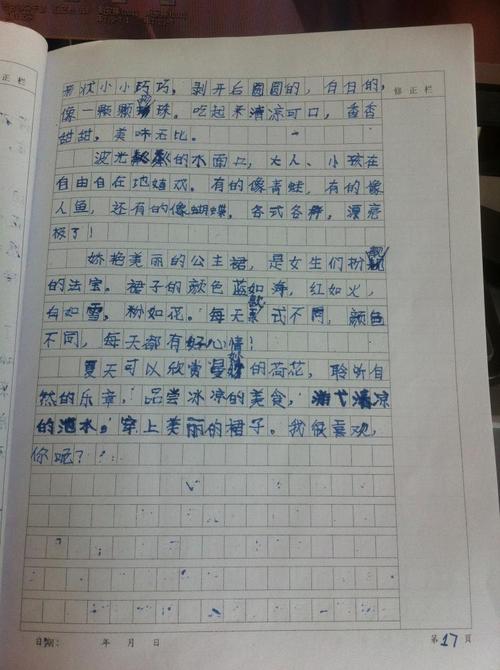 修正栏
形状小小巧巧，剥开后圆圆的，白白的，
像一颗颗珍珠。吃起来清凉可口，香香
甜甜，美味无比。
波光粼粼的水面上，大人、小孩在
自由自在地嬉戏。有的像青蛙，有的像
人鱼，还有的像蝴蝶，各式各样，漂亮
极了！
娇艳美丽的公主裙，是女生们扮靓
的法宝。裙子的颜色蓝如海，红如火，
白如雪，粉如花。每天款式不同，颜色
不同，每天都有好心情！
夏天可以欣赏曼妙的荷花，聆听自
然的乐章，品尝冰凉的美食，清凉
的池水，穿上美丽的裙子。我很喜欢，
你呢？
日期： 年 月 日
第17页